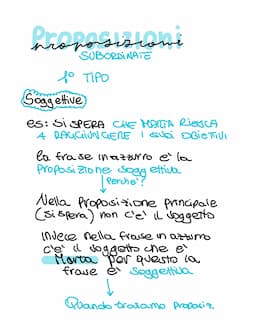 Proposizioni
proposizioni
SUBORDINATE
1° TIPO
Soggettive
es: SI SPERA CHE MARTA RIESCA
A RAGGIUNGERE I SUOI OBIETIVI
la frase in azzurro è la
Proposizione soggettiva
Perche'?
Nella Proposizione principale
(si spera) non c'è il soggetto
Invece nella frase in azzurro
c'è il soggetto che è
Marta per questo la
frase è soggettiva
Quando troviamo proposiz.